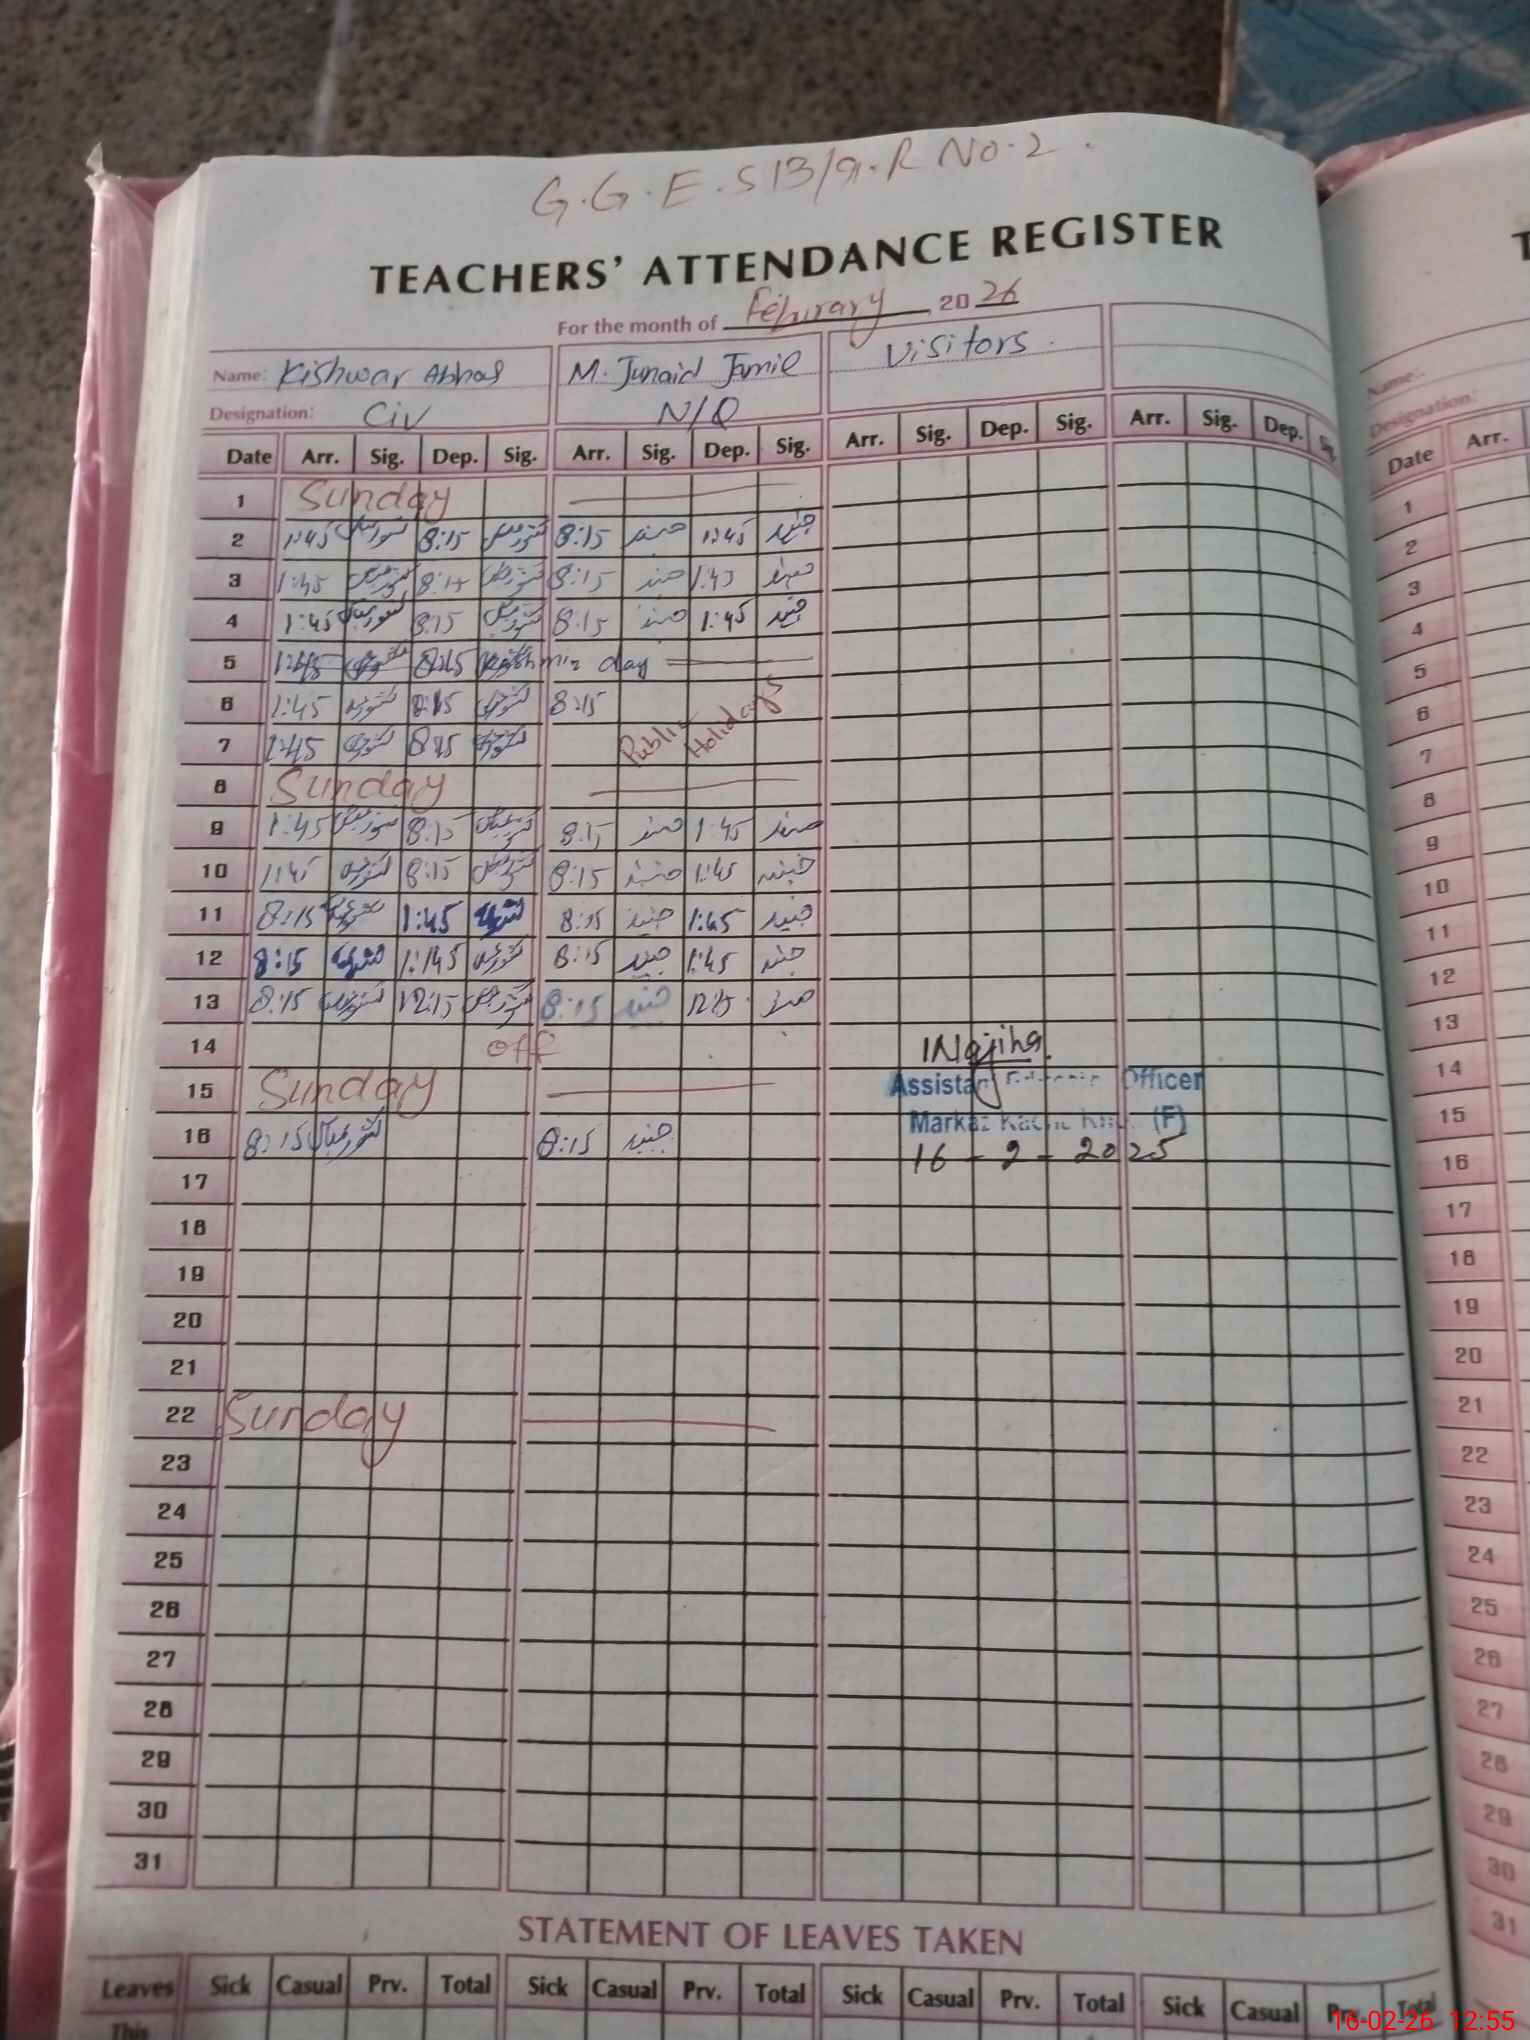 G.G.E.S 13/9.R No.2.
TEACHERS' ATTENDANCE REGISTER
For the month of Feburary 2026
Name: Kishwar Abbas M. Junaid Jamil Visitors.
Designation: Civ N/Q
Date Arr. Sig. Dep. Sig. Arr. Sig. Dep. Sig. Arr. Sig. Dep. Sig. Arr. Sig. Dep. Sig.
1 Sunday
2 1:45 8:15 8:15 جنید 1:45 جنید
3 1:45 8:15 8:15 جنید 1:45 جنید
4 1:45 8:15 8:15 جنید 1:45 جنید
5 1:45 8:15 Kashmir day
6 1:45 8:15 8:15
7 1:45 8:15 Public Holidays
8 Sunday
9 1:45 8:15 8:15 جنید 1:45 جنید
10 1:45 8:15 8:15 جنید 1:45 جنید
11 8:15 1:45 8:15 جنید 1:45 جنید
12 8:15 1:45 8:15 جنید 1:45 جنید
13 8:15 12:15 8:15 جنید 12:15 جنید
14 off
15 Sunday
Assistant Officer
Markaz (F)
16 8:15 کشور عباس 8:15 جنید
16-2-2025
17
18
19
20
21
22 Sunday
23
24
25
26
27
28
29
30
31
STATEMENT OF LEAVES TAKEN
Leaves Sick Casual Prv. Total Sick Casual Prv. Total Sick Casual Prv. Total Sick Casual Prv. Total
This
Name:
Designation:
Date Arr.
1
2
3
4
5
6
7
8
9
10
11
12
13
14
15
16
17
18
19
20
21
22
23
24
25
26
27
28
29
30
31
16-02-26 12:55